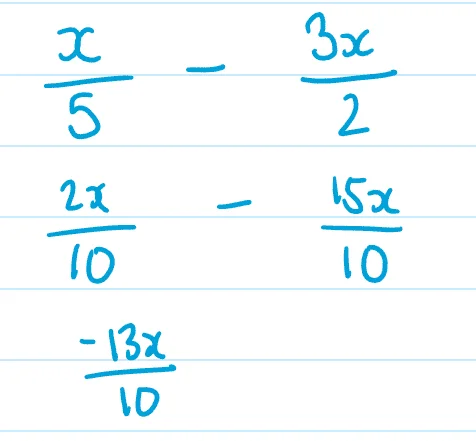 x/5 - 3x/2
2x/10 - 15x/10
-13x/10